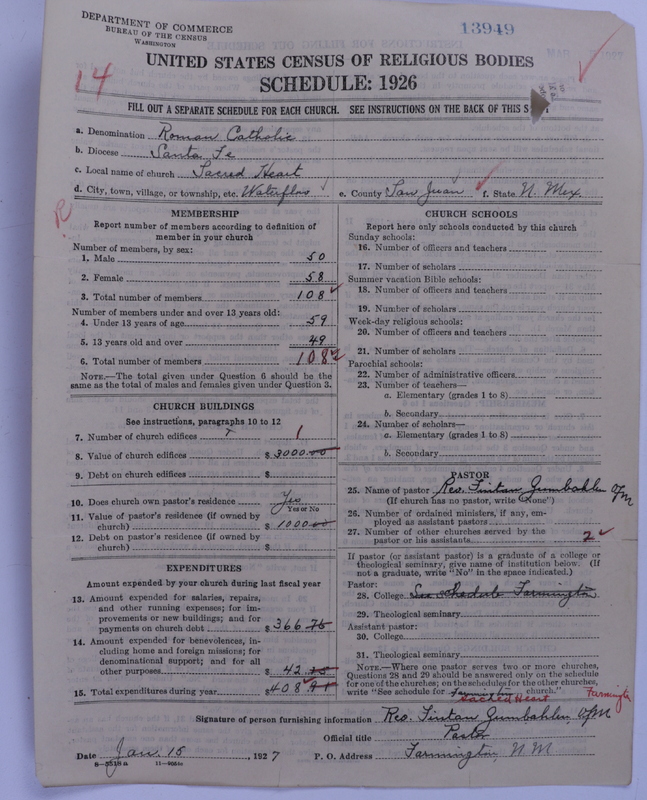 DEPARTMENT OF COMMERCE
BUREAU OF THE CENSUS
WASHINGTON
13949
UNITED STATES CENSUS OF RELIGIOUS BODIES
SCHEDULE: 1926
14
FILL OUT A SEPARATE SCHEDULE FOR EACH CHURCH. SEE INSTRUCTIONS ON THE BACK OF THIS
a. Denomination Roman Catholic
b. Diocese Santa Fe
c. Local name of church Sacred Heart
d. City, town, village, or township, etc. Waterflow e. County San Juan f. State N. Mex.
R
MEMBERSHIP
Report number of members according to definition of
member in your church
Number of members, by sex:
1. Male 50
2. Female 58
3. Total number of members 108
Number of members under and over 13 years old:
4. Under 13 years of age 59
5. 13 years old and over 49
6. Total number of members 108
NOTE.—The total given under Question 6 should be the
same as the total of males and females given under Question 3.
CHURCH BUILDINGS
See instructions, paragraphs 10 to 12
7. Number of church edifices 1
8. Value of church edifices $ 3000.00
9. Debt on church edifices $
10. Does church own pastor's residence Yes
Yes or No
11. Value of pastor's residence (if owned by
church) $ 1000.00
12. Debt on pastor's residence (if owned by
church) $
EXPENDITURES
Amount expended by your church during last fiscal year
13. Amount expended for salaries, repairs,
and other running expenses; for im-
provements or new buildings; and for
payments on church debt $ 366.75
14. Amount expended for benevolences, in-
cluding home and foreign missions; for
denominational support; and for all
other purposes $ 42.15
15. Total expenditures during year $ 408.91
CHURCH SCHOOLS
Report here only schools conducted by this church
Sunday schools:
16. Number of officers and teachers
17. Number of scholars
Summer vacation Bible schools:
18. Number of officers and teachers
19. Number of scholars
Week-day religious schools:
20. Number of officers and teachers
21. Number of scholars
Parochial schools:
22. Number of administrative officers
23. Number of teachers—
a. Elementary (grades 1 to 8)
b. Secondary
24. Number of scholars—
a. Elementary (grades 1 to 8)
b. Secondary
PASTOR
25. Name of pastor Rev. OFM
(If church has no pastor, write "none")
26. Number of ordained ministers, if any, em-
ployed as assistant pastors
27. Number of other churches served by the
pastor or his assistants 2
If pastor (or assistant pastor) is a graduate of a college or
theological seminary, give name of institution below. (If
not a graduate, write "No" in the space indicated.)
Pastor:
28. College See schedule Farmington
29. Theological seminary
Assistant pastor:
30. College
31. Theological seminary
NOTE.—Where one pastor serves two or more churches,
Questions 28 and 29 should be answered only on the schedule
for one of the churches; on the schedules for the other churches,
write "See schedule for Farmington church." Farmington
Sacred Heart
Signature of person furnishing information Rev. OFM
Official title Pastor
Date Jan. 15, 1927 P. O. Address Farmington, N M